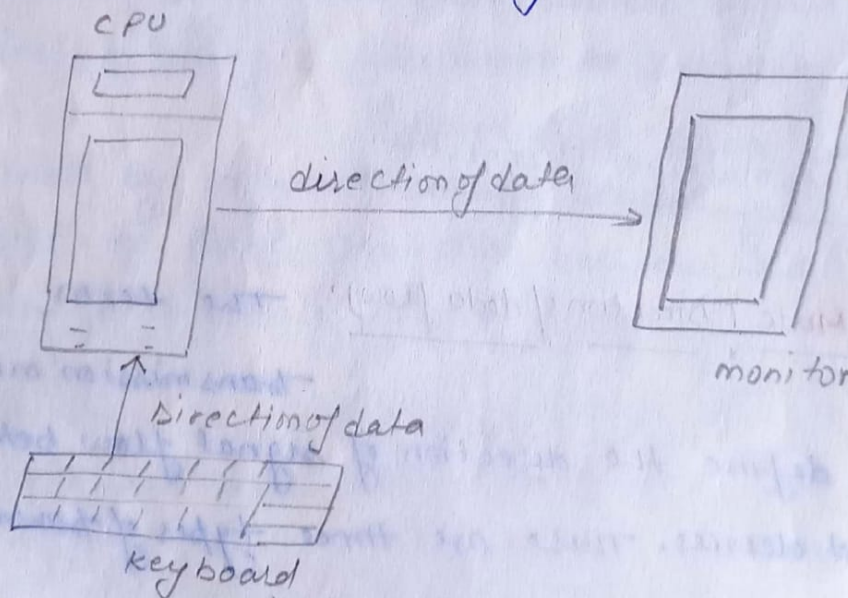 CPU
direction of data
monitor
Direction of data
keyboard